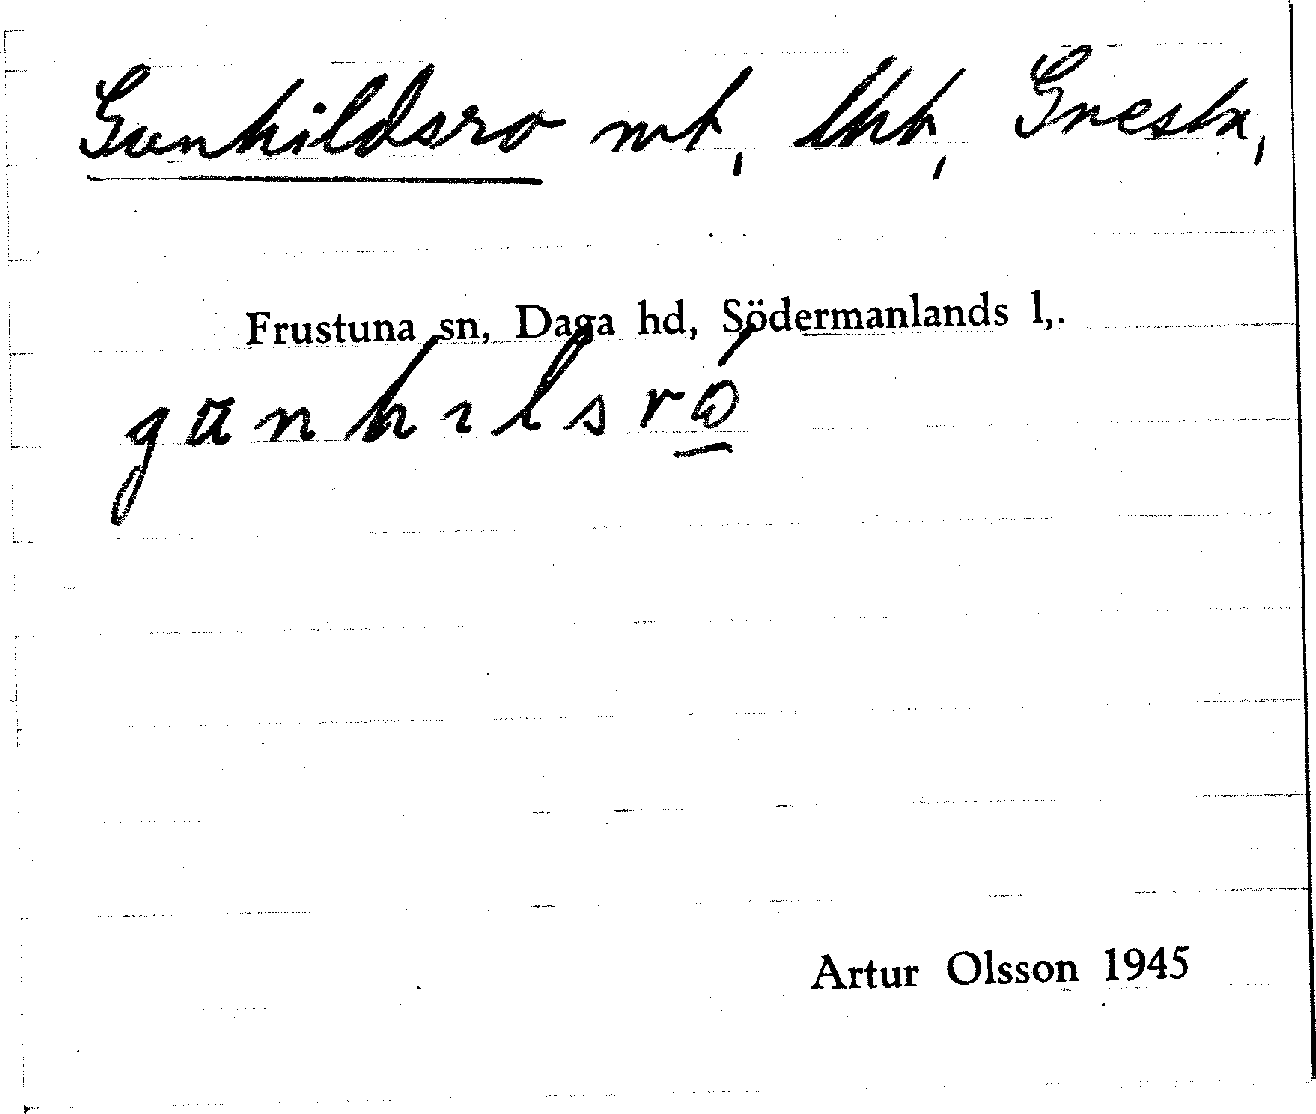 Gunhildsro mt, lht, Gnesta,
Frustuna sn, Daga hd, Södermanlands l,.
gunhilsró
Artur Olsson 1945